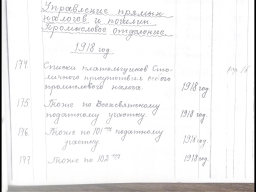 Управление прямых
налогов и пошлин.
Промысловое отделение.
1918 год
194. Списки плательщиков Сто-
личного
промыслового налога. 1918 год.
195. Тоже по Василевскому
податному участку 1918 год.
196. Тоже по 101му податному
участку 1918 год
197. Тоже по 102му 1918 год